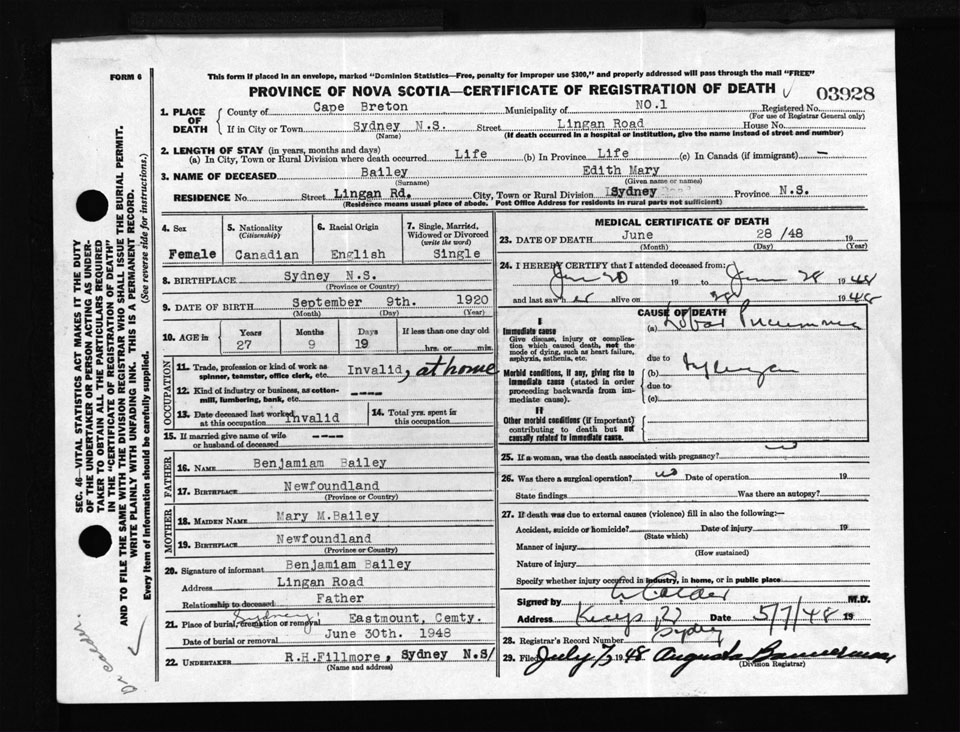 FORM 6
This form if placed in an envelope, marked "Dominion Statistics—Free, penalty for improper use $300," and properly addressed will pass through the mail "FREE"
PROVINCE OF NOVA SCOTIA—CERTIFICATE OF REGISTRATION OF DEATH
03928
1. PLACE OF DEATH
County of Cape Breton Municipality of NO.1 Registered No.
(For use of Registrar General only)
If in City or Town Sydney N.S. Street Lingan Road House No.
(Name) (If death occurred in a hospital or institution, give the name instead of street and number)
2. LENGTH OF STAY (in years, months and days)
(a) In City, Town or Rural Division where death occurred Life (b) In Province Life (c) In Canada (if immigrant) —
3. NAME OF DECEASED Bailey Edith Mary
(Surname) (Given name or names)
RESIDENCE No. Street Lingan Rd. City, Town or Rural Division Sydney Province N.S.
(Residence means usual place of abode. Post Office Address for residents in rural parts not sufficient)
4. Sex
Female
5. Nationality
(Citizenship)
Canadian
6. Racial Origin
English
7. Single, Married, Widowed or Divorced
(write the word)
Single
8. BIRTHPLACE Sydney N.S.
(Province or Country)
9. DATE OF BIRTH September 9th. 1920
(Month) (Day) (Year)
10. AGE in Years Months Days If less than one day old
27 9 19 hrs. or min.
OCCUPATION
11. Trade, profession or kind of work as spinner, teamster, office clerk, etc. Invalid, at home
12. Kind of industry or business, as cotton-mill, lumbering, bank, etc. ----
13. Date deceased last worked at this occupation Invalid
14. Total yrs. spent in this occupation
15. If married give name of wife or husband of deceased ----
FATHER
16. NAME Benjamiam Bailey
17. BIRTHPLACE Newfoundland
(Province or Country)
MOTHER
18. MAIDEN NAME Mary M.Bailey
19. BIRTHPLACE Newfoundland
(Province or Country)
20. Signature of informant Benjamiam Bailey
Address Lingan Road
Relationship to deceased Father
21. Place of burial, cremation or removal Sydney Eastmount, Cemty.
Date of burial or removal June 30th. 1948
22. UNDERTAKER R.H.Fillmore, Sydney N.S/
(Name and address)
MEDICAL CERTIFICATE OF DEATH
23. DATE OF DEATH June 28 /48 19
(Month) (Day) (Year)
24. I HEREBY CERTIFY that I attended deceased from:
June 20 19 to June 28 1948
and last saw her alive on 28 1948
CAUSE OF DEATH
I
Immediate cause
Give disease, injury or complication which caused death, not the mode of dying, such as heart failure, asphyxia, asthenia, etc.
(a) Lobar Pneumonia
due to
Morbid conditions, if any, giving rise to immediate cause (stated in order proceeding backwards from immediate cause).
(b)
due to
(c)
II
Other morbid conditions (if important) contributing to death but not causally related to immediate cause.
25. If a woman, was the death associated with pregnancy? no
26. Was there a surgical operation? no Date of operation 19
State findings Was there an autopsy?
27. If death was due to external causes (violence) fill in also the following:—
Accident, suicide or homicide? Date of injury 19
(State which)
Manner of injury
(How sustained)
Nature of injury
Specify whether injury occurred in industry, in home, or in public place
Signed by Calder M.D.
Address Sydney Date 5/7/48 19
28. Registrar's Record Number
29. Filed July 7, 1948 Augusta Bannerman
(Division Registrar)
SEC. 46—VITAL STATISTICS ACT MAKES IT THE DUTY
OF THE UNDERTAKER OR PERSON ACTING AS UNDER-
TAKER TO OBTAIN ALL THE PARTICULARS REQUIRED
IN THE "CERTIFICATE OF REGISTRATION OF DEATH"
AND TO FILE THE SAME WITH THE DIVISION REGISTRAR WHO SHALL ISSUE THE BURIAL PERMIT.
WRITE PLAINLY WITH UNFADING INK. THIS IS A PERMANENT RECORD.
Every item of Information should be carefully supplied. (See reverse side for instructions.)
Dr Calder.